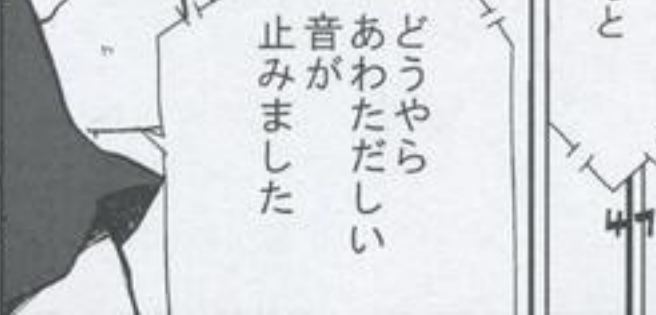 と
どうやら
あわただしい
音が
止みました